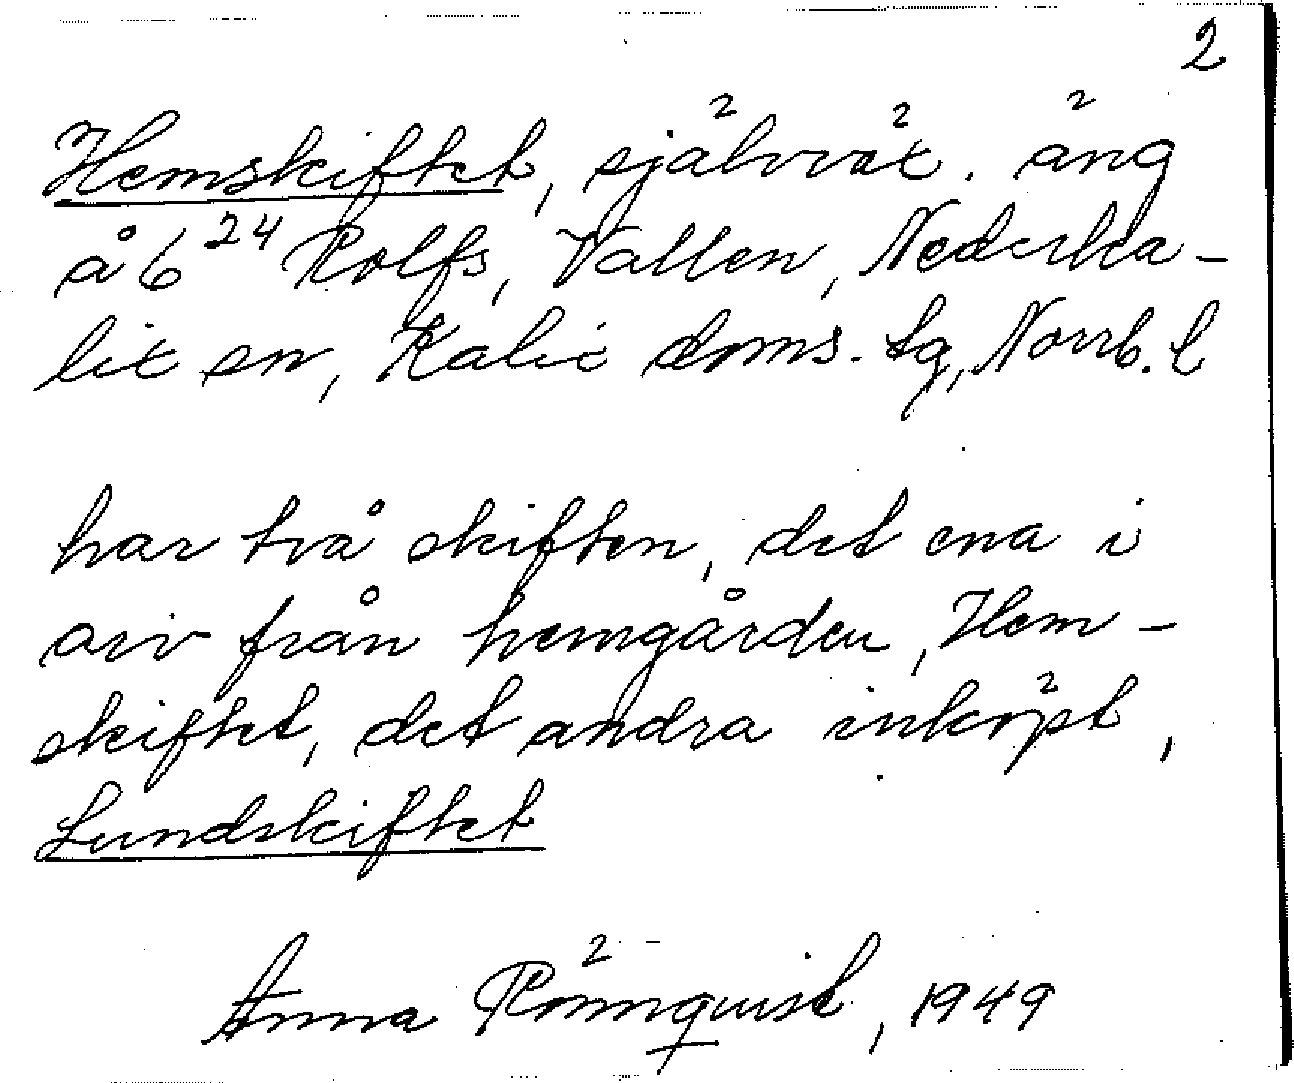 2
Hemskiftet, självväx. äng
å 6²⁴ Rolfs, Vallen, Nederka-
lix sn, Kalix doms. tg, Norrb. l
har två skiften, det ena i
arv från hemgården, Hem-
skiftet, det andra inköpt,
Lundskiftet
Anna Rönnquist, 1949